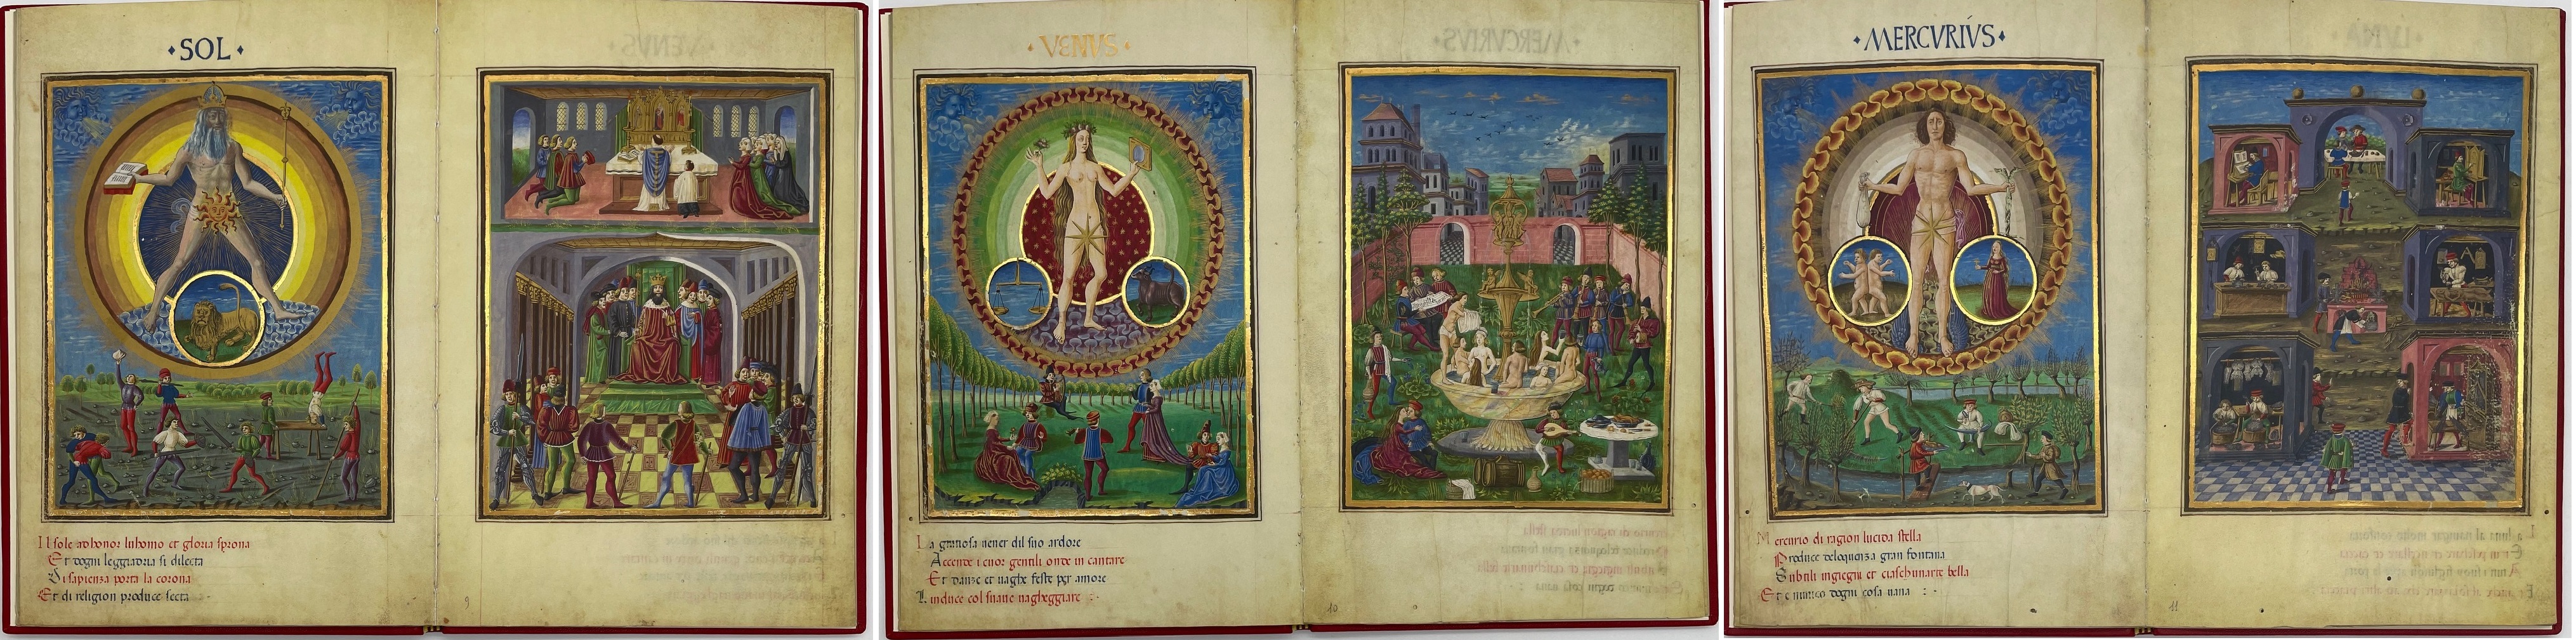 ·SOL·
Il sole adhonor lhuomo et gloria sprona
Et dogni leggiadria si dilecta
Di sapienza porta la corona
Et di religion produce secta
9
·VENVS·
La gratiosa uener dil suo ardore
Accende i cuor gentili onde in cantare
Et danze et uaghe feste per amore
Linduce col suaue uagheggiare :·
10
·MERCVRIVS·
Mercurio di ragion lucida stella
Produce deloquenza gran fontana
Subtili ingiegni et ciaschunarte bella
Et e nimico dogni cosa uana :·
11